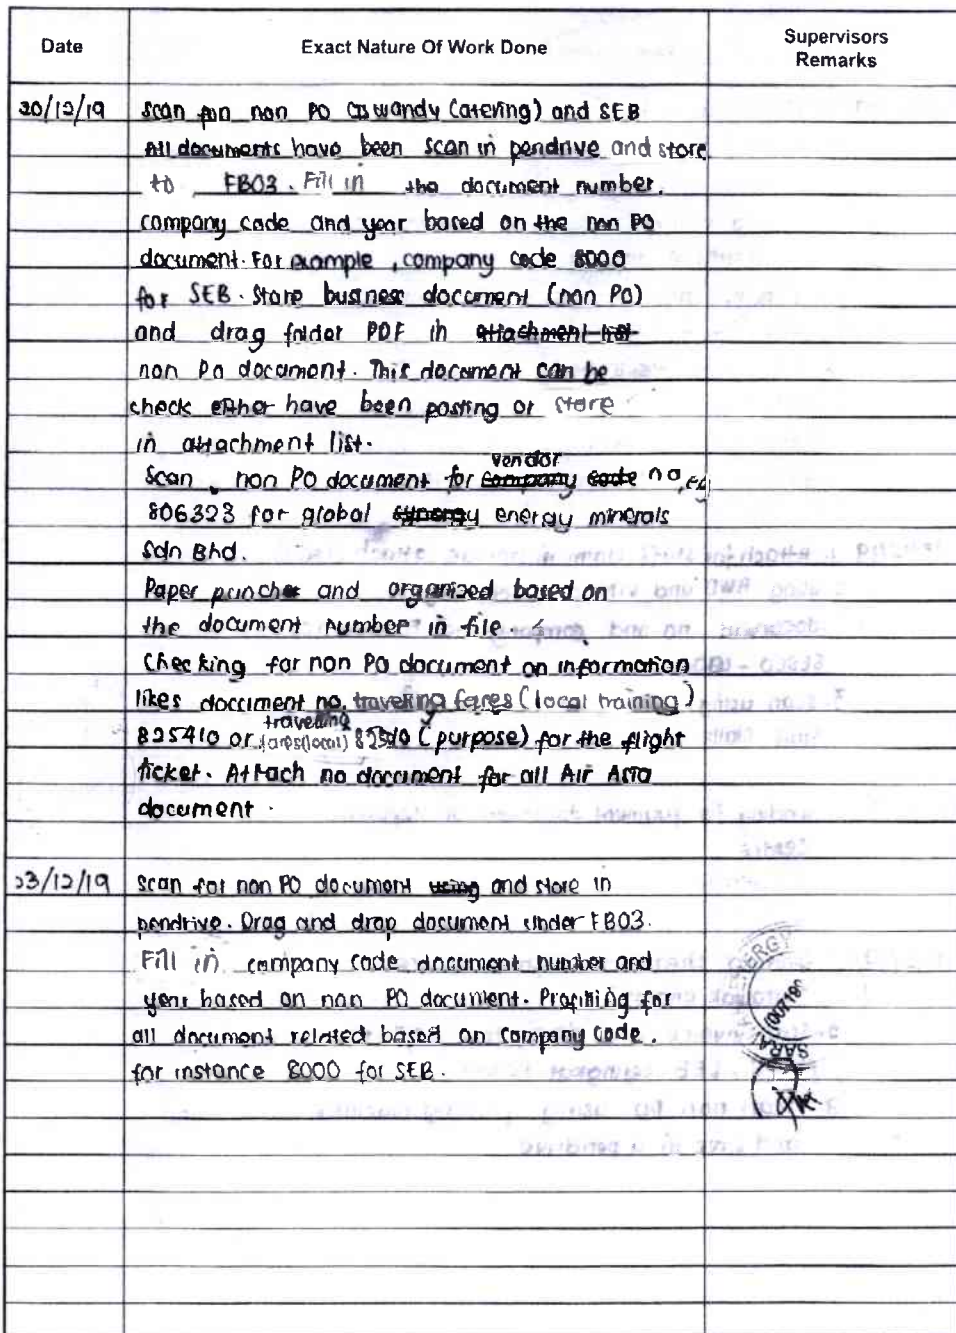 Date
Exact Nature Of Work Done
Supervisors
Remarks
20/12/19
Scan for non PO (Iswandy Catering) and SEB
All documents have been scan in pendrive and store
to FB03. Fill in the document number,
company code and year based on the non PO
document. For example, company code 8000
for SEB. Store business document (non PO)
and drag folder PDF in attachment list
non PO document. This document can be
check either have been posting or store
in attachment list.
vendor
Scan non PO document for company code no, eg
806323 for global energy minerals
Sdn Bhd.
Paper puncher and organized based on
the document number in file.
Checking for non PO document on information
likes document no, traveling fares (local training)
traveling
825410 or fares(local) (purpose) for the flight
ticket. Attach no document for all Air Asia
document.
23/12/19
Scan for non PO document using and store in
pendrive. Drag and drop document under FB03.
Fill in company code document number and
year based on non PO document.
for
all document related based on company code.
for instance 8000 for SEB.